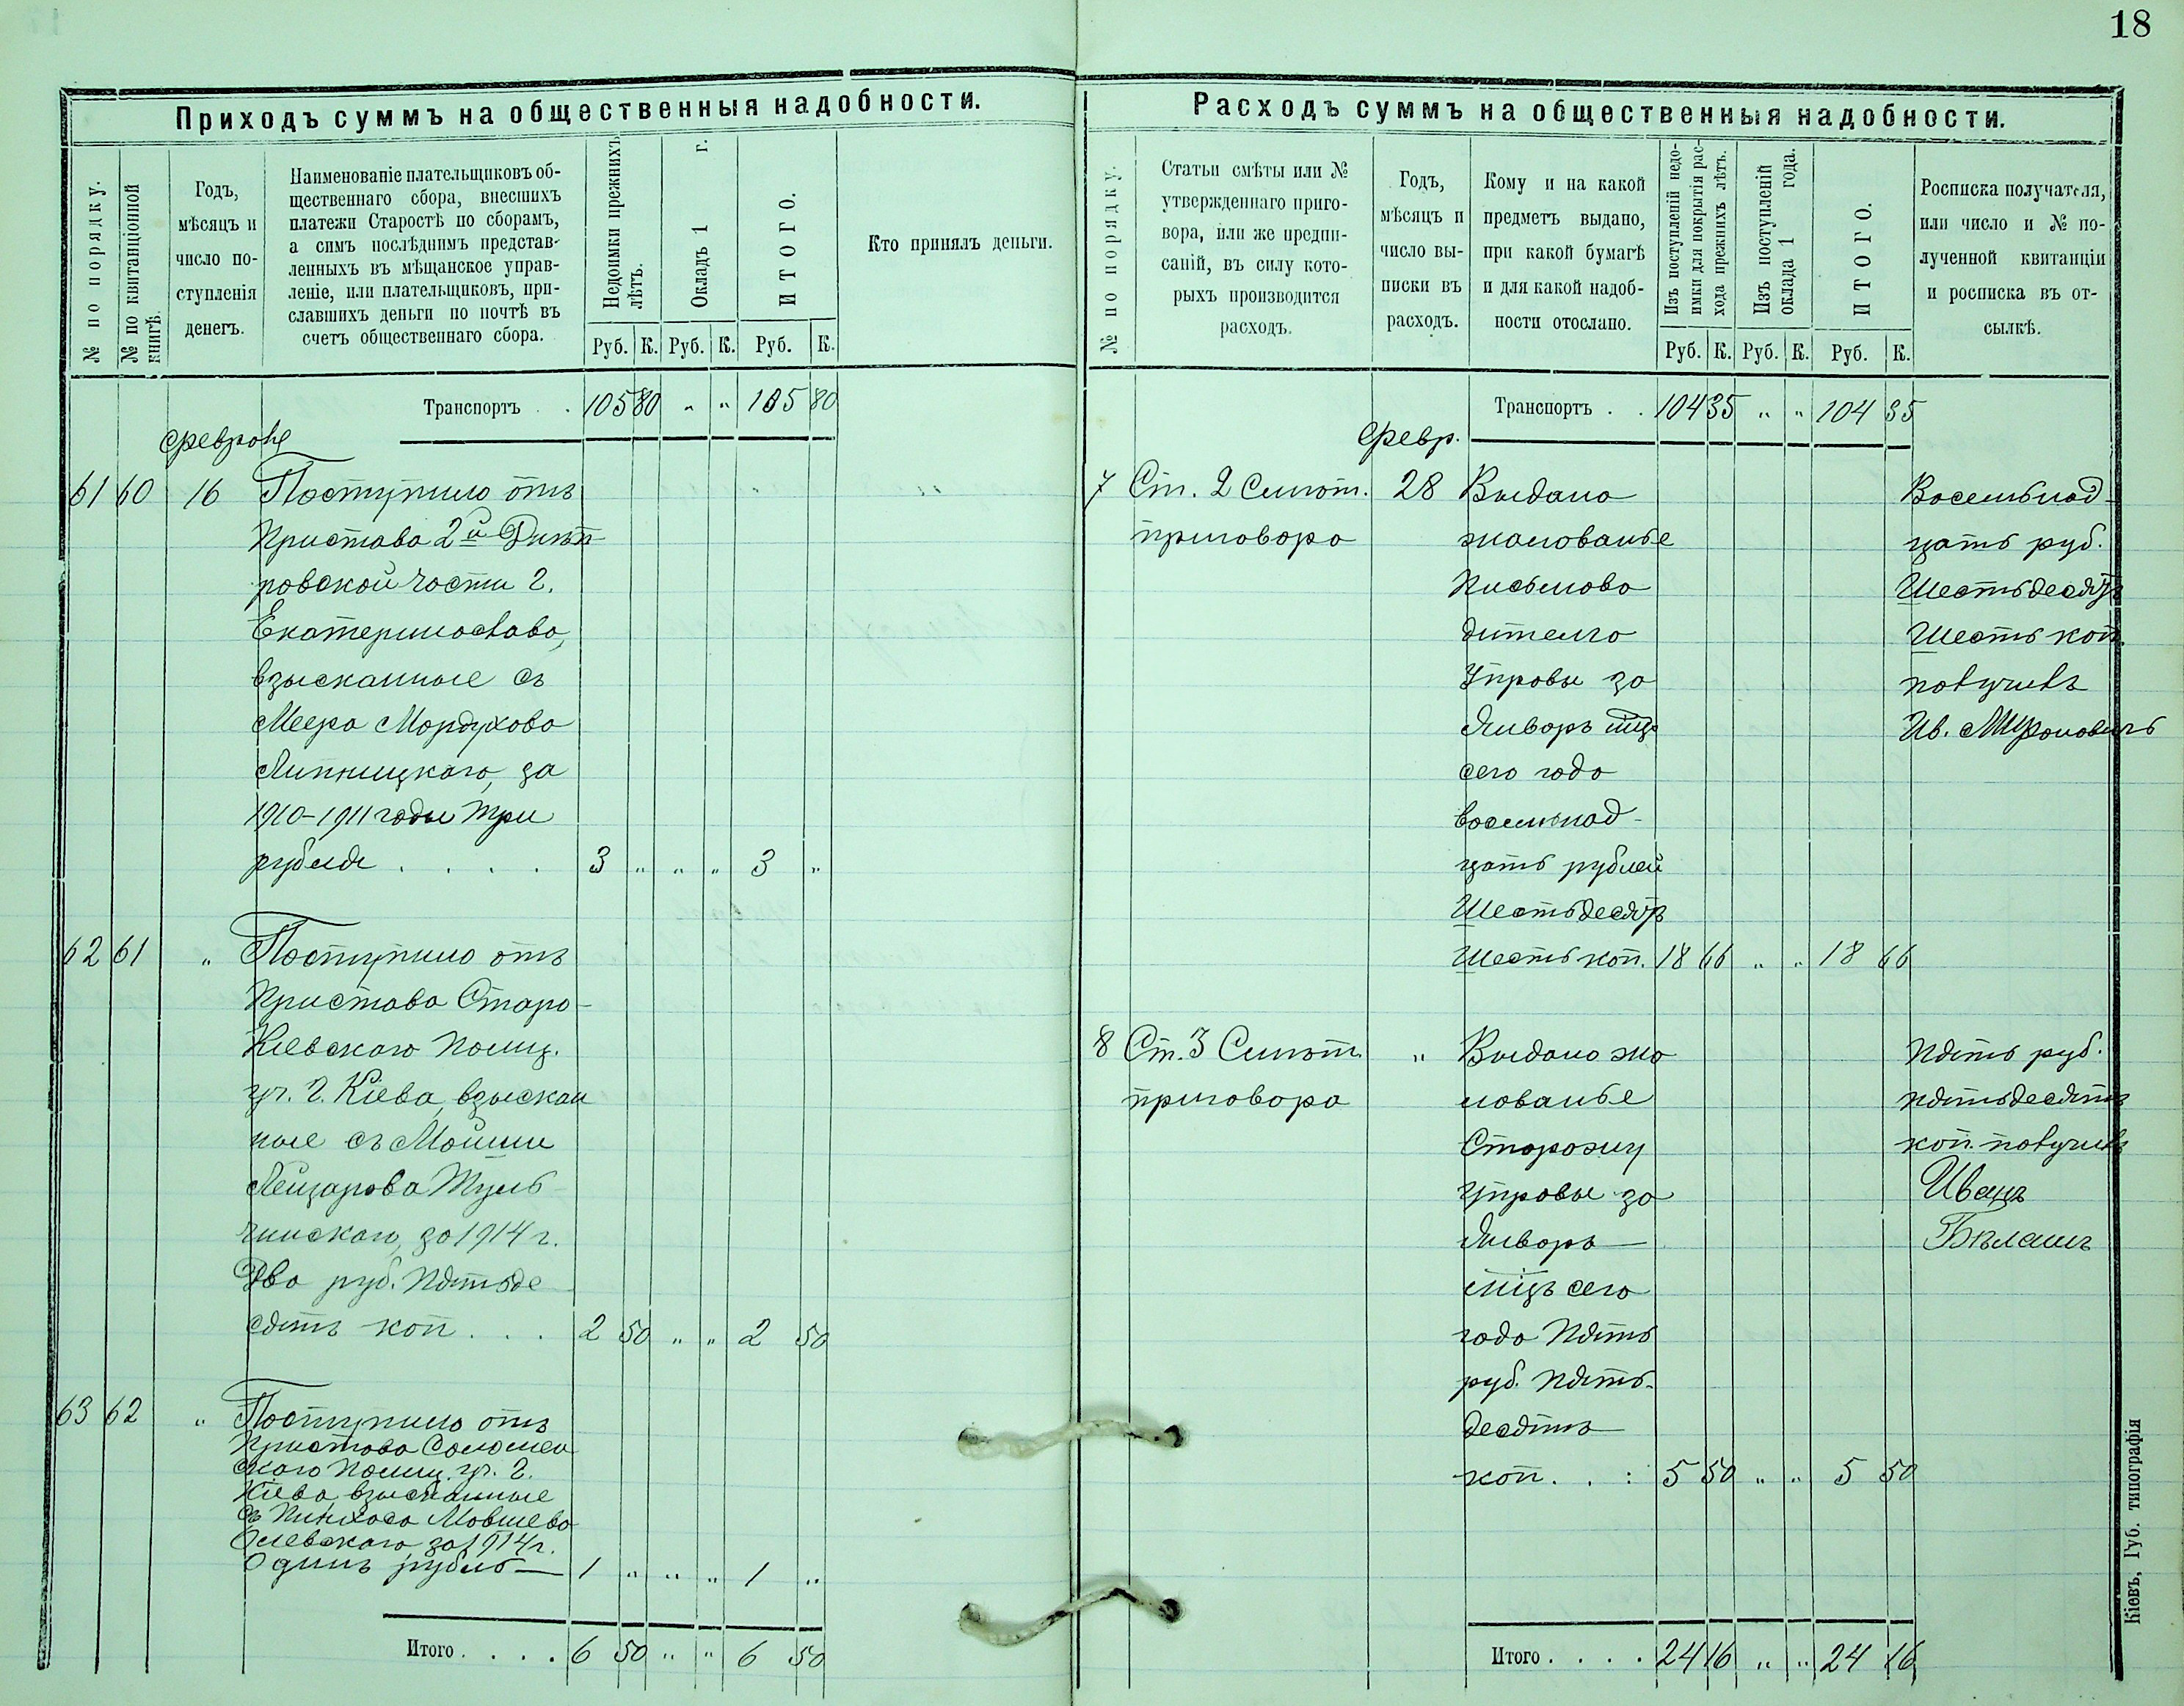 18
Приходъ суммъ на общественныя надобности.
№ по порядку.
№ по квитанціонной
книгѣ.
Годъ,
мѣсяцъ и
число по-
ступленія
денегъ.
Наименованіе плательщиковъ об-
щественнаго сбора, внесшихъ
платежи Старостѣ по сборамъ,
а симъ послѣднимъ представ-
ленныхъ въ мѣщанское управ-
леніе, или плательщиковъ, при-
славшихъ деньги по почтѣ въ
счетъ общественнаго сбора.
Недоимки прежнихъ
лѣтъ.
Окладъ 1 г.
ИТОГО.
Кто принялъ деньги.
Руб. К. Руб. К. Руб. К.
Транспортъ . . 105 80 „ „ 105 80
Февраля
61 60 16 Поступило отъ
Пристава 2й Днѣп
ровской части г.
Екатеринослава,
взысканные съ
Меера Мордухова
Липницкаго, за
1910-1911 годы три
рубля . . . . 3 „ „ „ 3 „
62 61 „ Поступило отъ
Пристава Старо-
Кіевскаго Полиц.
уч. г. Кіева, взыскан
ные съ Мойши
Лейзарова Туль-
чинскаго, за 1914 г.
Два руб. пятьде
сятъ коп . . . 2 50 „ „ 2 50
63 62 „ Поступило отъ
Пристава Соломен
скаго Полиц. уч. г.
Кіева взысканные
съ Пинхаса Мовшева
за 1914 г.
Одинъ рубль — 1 „ „ „ 1 „
Итого . . . . 6 50 „ „ 6 50
Расходъ суммъ на общественныя надобности.
№ по порядку.
Статьи смѣты или №
утвержденнаго приго-
вора, или же предпи-
саній, въ силу кото-
рыхъ производится
расходъ.
Годъ,
мѣсяцъ и
число вы-
писки въ
расходъ.
Кому и на какой
предметъ выдано,
при какой бумагѣ
и для какой надоб-
ности отослано.
Изъ поступленій недо-
имки для покрытія рас-
хода прежнихъ лѣтъ.
Изъ поступленій
оклада 1 года.
ИТОГО.
Росписка получателя,
или число и № по-
лученной квитанціи
и росписка въ от-
сылкѣ.
Руб. К. Руб. К. Руб. К.
Транспортъ . . 104 35 „ „ 104 35
Февр.
7 Ст. 2 Смѣт. 28 Выдано
приговора жалованье
Письмово
дителю
Управы за
Январь мцъ
сего года
восемнад-
цать рублей
шестьдесятъ
шесть коп. 18 66 „ „ 18 66
Восемьнад-
цать руб.
шестьдесятъ
шесть коп.
получилъ
Ив. Миронович
8 Ст. 3 Смѣт. „ Выдано жа
приговора лованье
Сторожу
управы за
Январь
мцъ сего
года пять
руб. пять-
десятъ
коп. . : 5 50 „ „ 5 50
Пять руб.
пятьдесятъ
коп. получилъ
Иванъ
Бѣлашъ
Итого . . . . 24 16 „ „ 24 16
Кіевъ, Губ. типографія